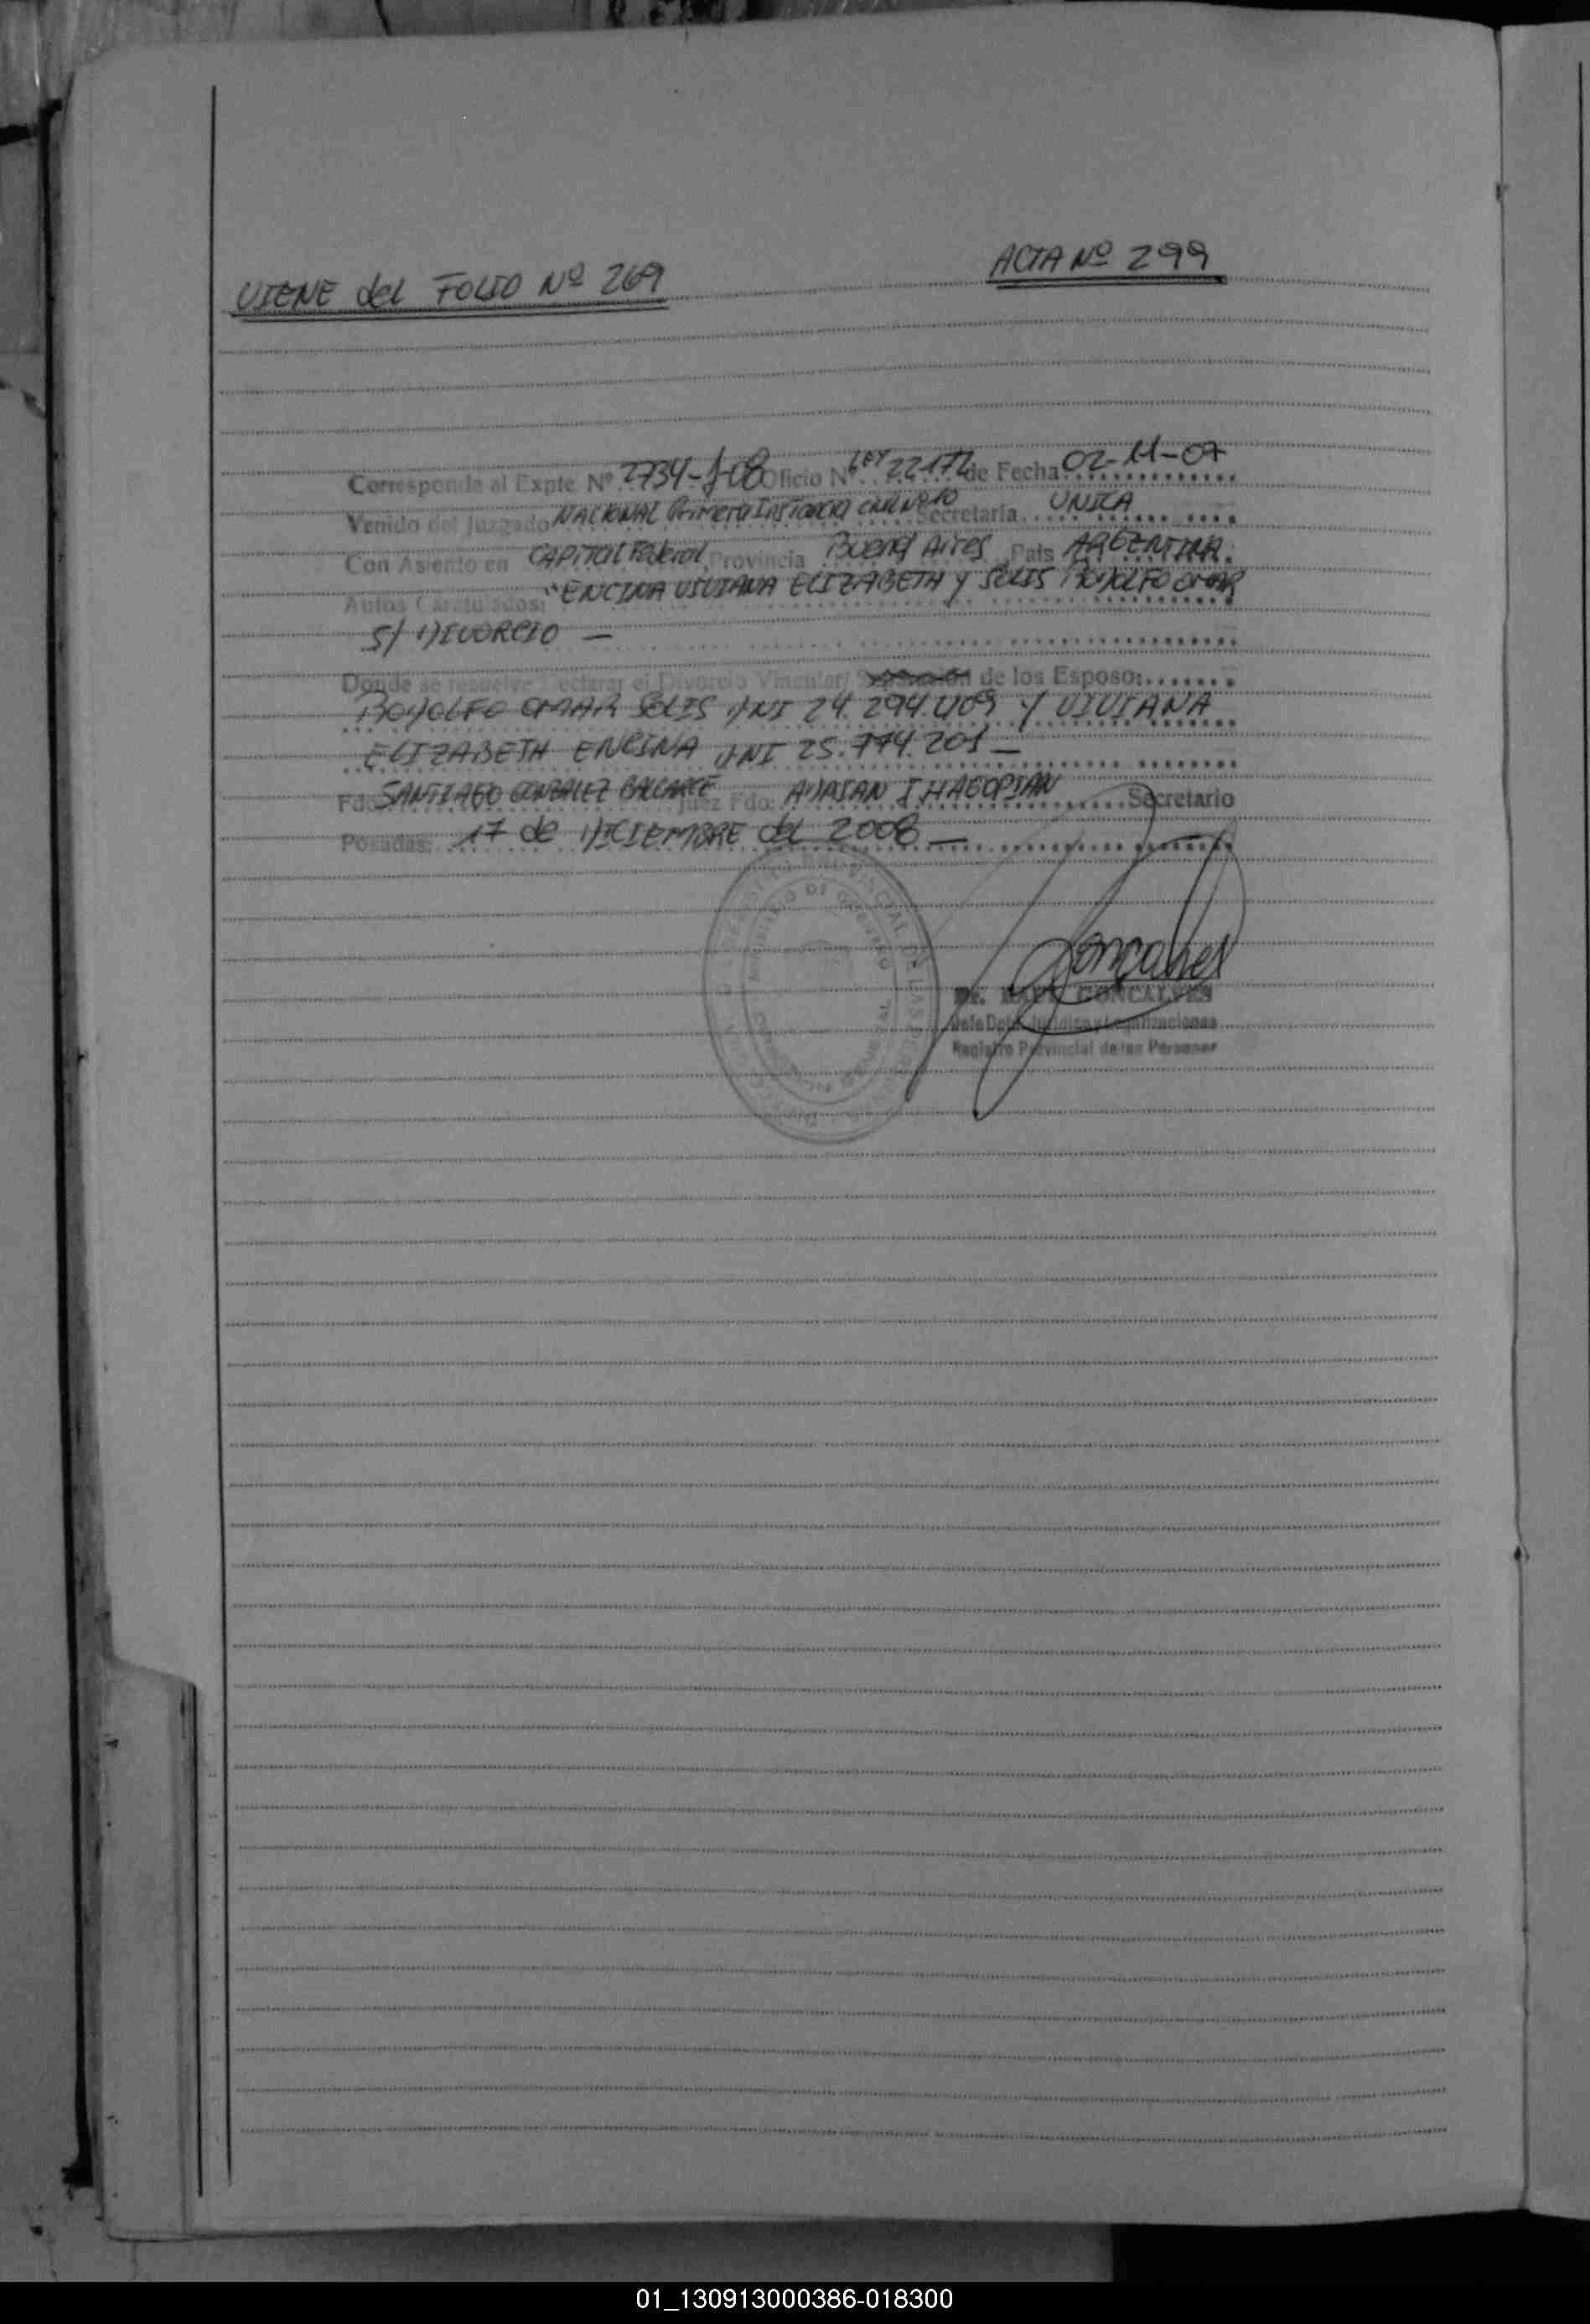 VIENE del FOLIO Nº 269
ACTA Nº 299
Corresponde al Expte Nº 2734-J-08 Oficio Nº LEY 22172 de Fecha 02-11-07
Venido del Juzgado NACIONAL Primera Instancia CIVIL Nº 10 Secretaria UNICA
Con Asiento en CAPITAL Federal Provincia Buenos Aires Pais ARGENTINA.
Autos Caratulados: "ENCINA VIVIANA ELIZABETH Y SOLIS RODOLFO OMAR
S/ DIVORCIO —
Donde se resuelve Declarar el Divorcio Vincular/ de los Esposo:
RODOLFO OMAR SOLIS DNI 24.294.409 Y VIVIANA
ELIZABETH ENCINA DNI 25.774.201 —
Fdo SANTIAGO GONZALEZ BALCARCE Juez Fdo: ADRIAN J HAGOPIAN Secretario
Posadas: 17 de DICIEMBRE del 2008 —
Goncalves
Dr. RAUL GONCALVES
Jefe Dpto. Juridico y Legalizaciones
Registro Provincial de las Personas
01_130913000386-018300